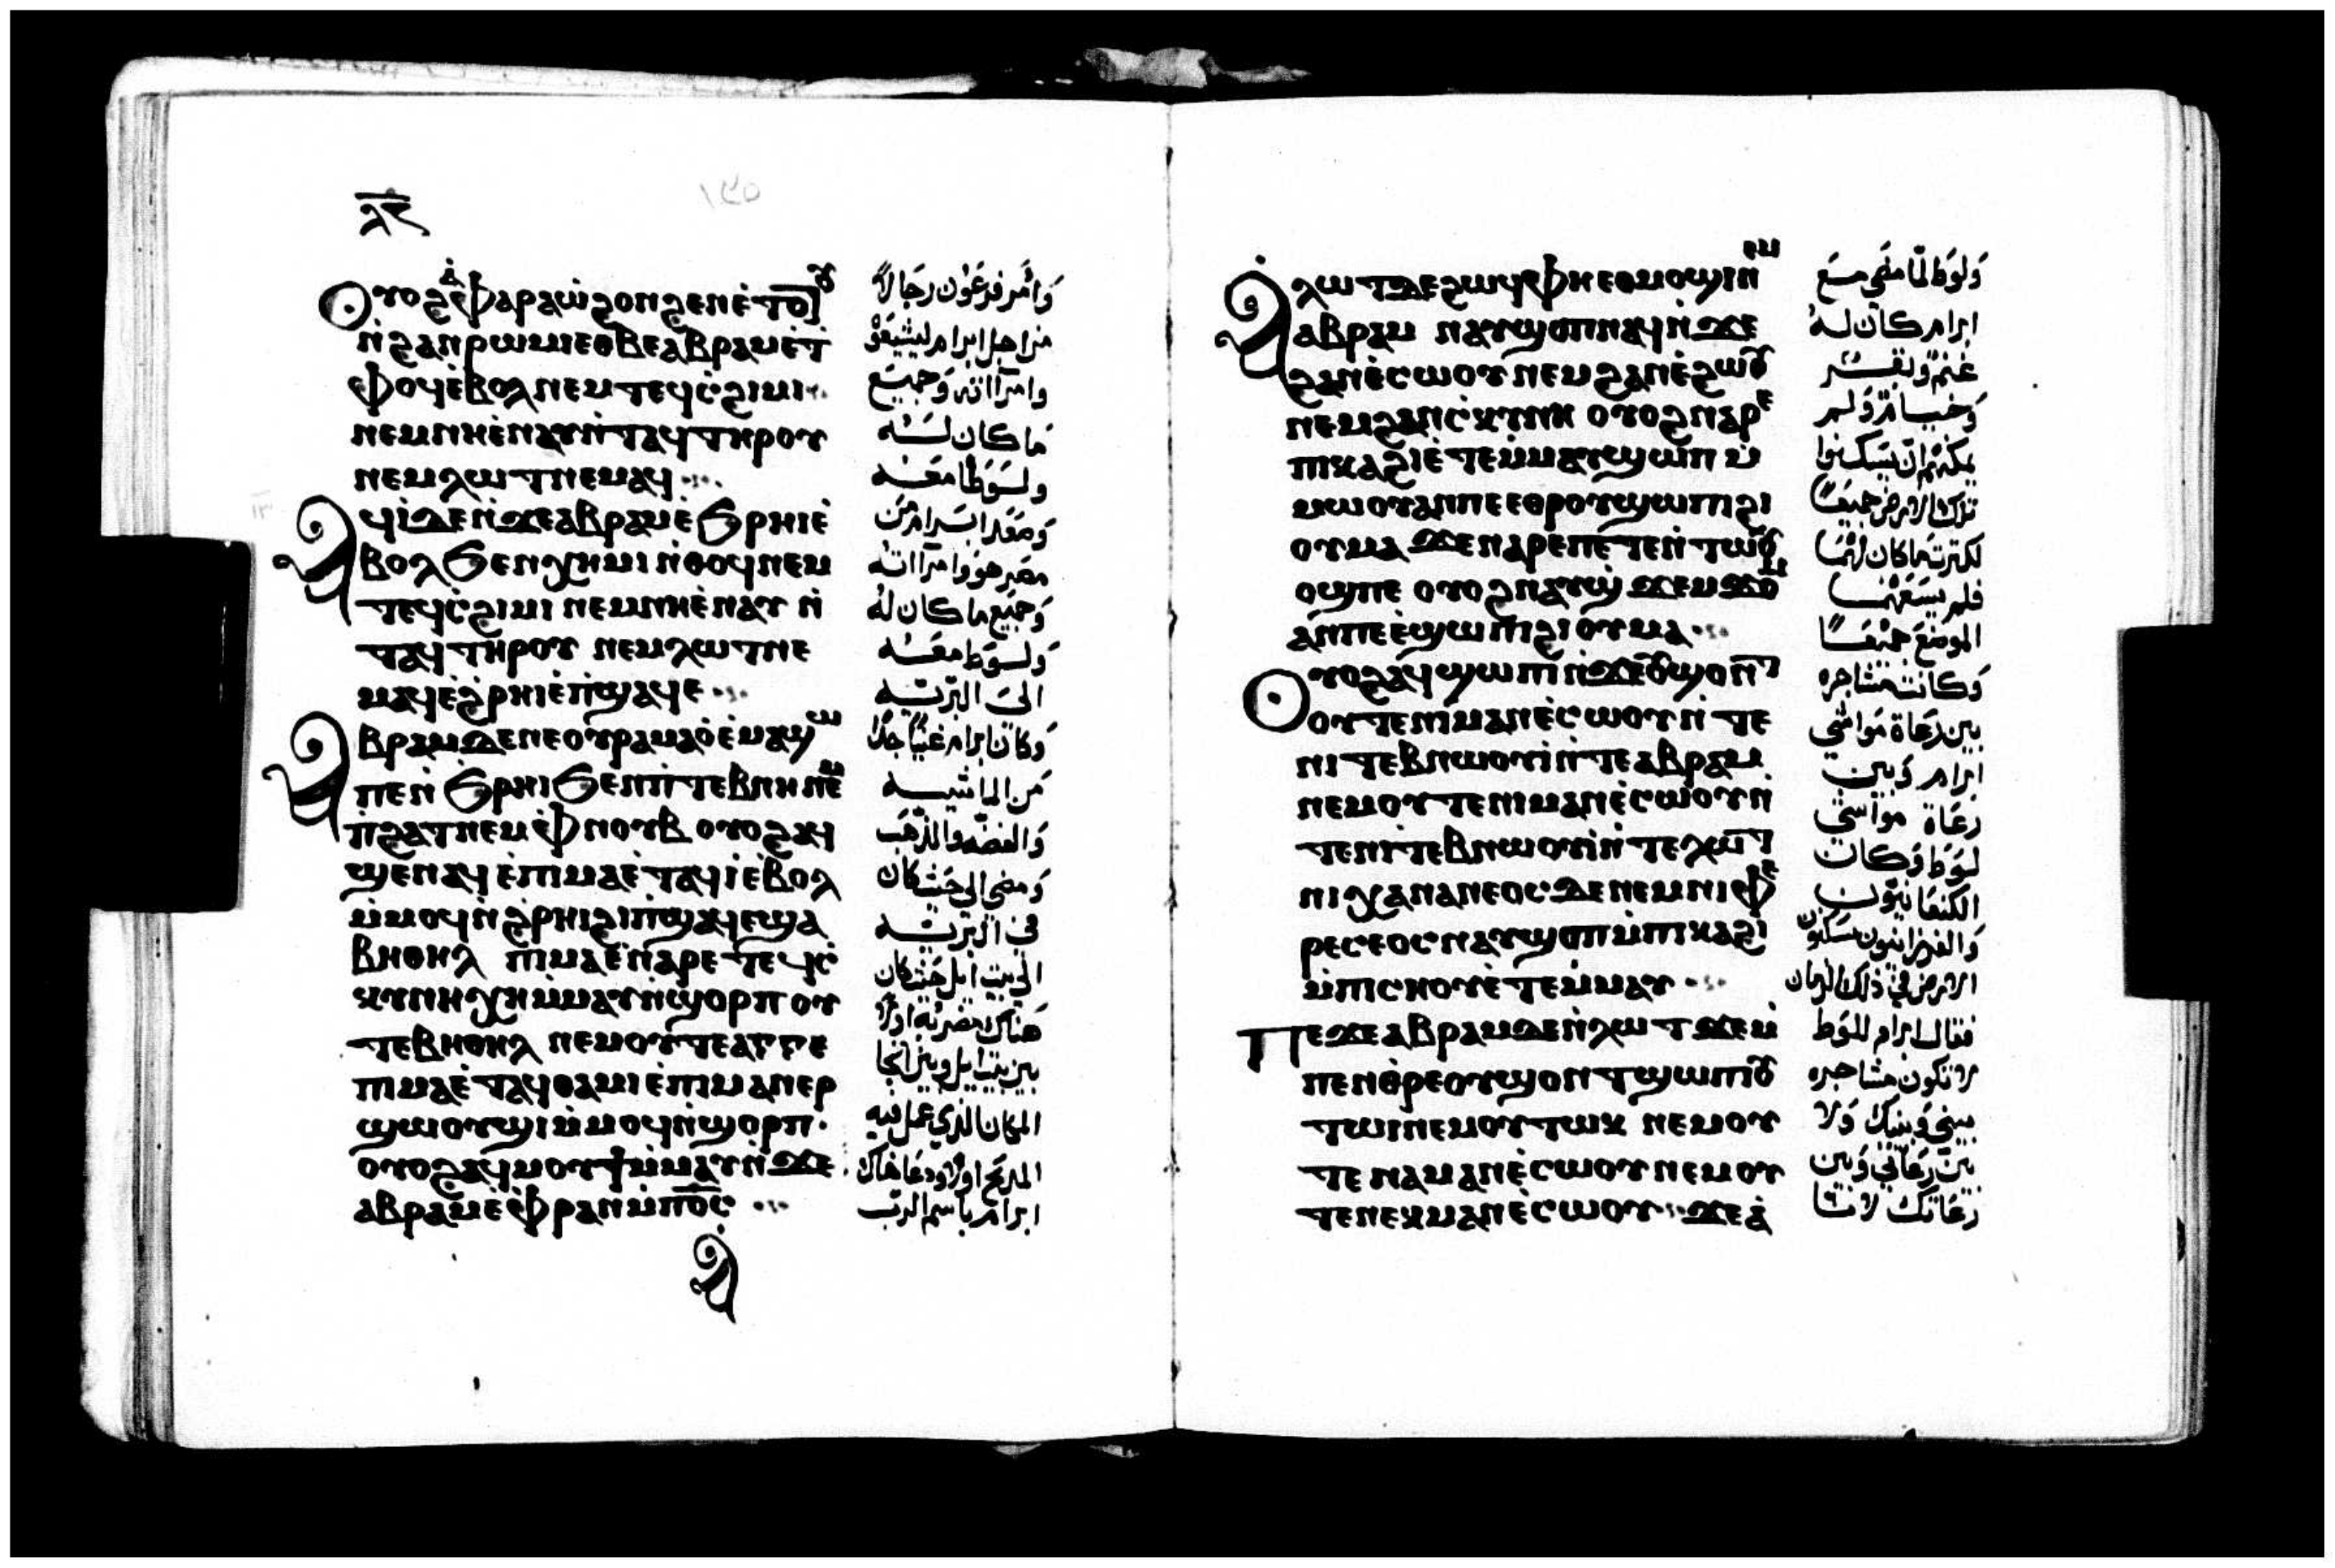 ⲗ̅ⲋ̅
١٤٥
ⲟⲩⲟϩ ⲁ̀ⲫⲁⲣⲁⲱ̀ ϩⲟⲛϩⲉⲛ ⲉ̀ⲧⲟⲧⲟⲩ
ⲛ̀ϩⲁⲛⲣⲱⲙⲓ ⲉⲑⲃⲉ ⲁⲃⲣⲁⲙ ⲉ̀ⲧ
ⲫⲟϥ ⲉ̀ⲃⲟⲗ ⲛⲉⲙ ⲧⲉϥⲥ̀ϩⲓⲙⲓ
ⲛⲉⲙ ⲛⲏ ⲉ̀ⲛⲁⲩⲛ̀ⲧⲁϥ ⲧⲏⲣⲟⲩ
ⲛⲉⲙ ⲗⲱⲧ ⲛⲉⲙⲁϥ
ⲁϥⲓ̀ ⲇⲉ ⲛ̀ϫⲉ ⲁⲃⲣⲁⲙ ⲉ̀ϧⲣⲏⲓ ⲉ̀
ⲃⲟⲗ ϧⲉⲛ ⲭⲏⲙⲓ ⲛ̀ⲑⲟϥ ⲛⲉⲙ
ⲧⲉϥⲥ̀ϩⲓⲙⲓ ⲛⲉⲙ ⲛⲏ ⲉ̀ⲛⲁⲩ ⲛ̀
ⲧⲁϥ ⲧⲏⲣⲟⲩ ⲛⲉⲙ ⲗⲱⲧ ⲛⲉ
ⲙⲁϥ ⲉ̀ϩ̀ⲣⲏⲓ ⲉ̀ⲡ̀ϣⲁϥⲉ
ⲁⲃⲣⲁⲙ ⲇⲉ ⲛⲉ ⲟⲩⲣⲁⲙⲁⲟ̀ ⲉ̀ⲙⲁϣⲱ
ⲡⲉ ⲛ̀ϧⲣⲏⲓ ϧⲉⲛ ⲛⲓⲧⲉⲃⲛⲏ ⲛⲉⲙ
ⲡ̀ϩⲁⲧ ⲛⲉⲙ ⲫ̀ⲛⲟⲩⲃ ⲟⲩⲟϩ ⲁϥ
ϣⲉⲛⲁϥ ⲉ̀ⲡⲓⲙⲁ ⲉ̀ⲧⲁϥⲓ̀ ⲉ̀ⲃⲟⲗ
ⲙ̀ⲙⲟϥ ⲛ̀ϩ̀ⲣⲏⲓ ϩⲓ ⲡ̀ϣⲁϥⲉ ϣⲁ
ⲃⲏⲑⲏⲗ ⲡⲓⲙⲁ ⲉ̀ⲛⲁⲣⲉ ⲧⲉϥⲥ̀
ⲕⲩⲛⲏ ⲭⲏ ⲙ̀ⲙⲁⲩ ⲛ̀ϣⲟⲣⲡ ⲟⲩ
ⲧⲉ ⲃⲏⲑⲏⲗ ⲛⲉⲙ ⲟⲩⲧⲉ ⲁⲅⲅⲉ
ⲡⲓⲙⲁ ⲉ̀ⲧⲁϥⲑⲁⲙⲓⲟ̀ ⲙ̀ⲡⲓⲙⲁⲛⲉⲣ
ϣⲱⲟⲩϣⲓ ⲙ̀ⲙⲟϥ ⲛ̀ϣⲟⲣⲡ
ⲟⲩⲟϩ ⲁϥⲙⲟⲩϯ ⲙ̀ⲙⲁⲩ ⲛ̀ϫⲉ
ⲁⲃⲣⲁⲙ ⲉ̀ⲫ̀ⲣⲁⲛ ⲙ̀ⲡⲟ̅ⲥ̅
ⲁ
وَامَر فرعَوْن رجَالاً
من اجل ابرام ليشيعَوْ
وامرااته وَجميعَ
ما كان لَــه
ولــوَطاً معَــه
وصعَد ابــرام من
مصَر هوَ وامرااته
وَجميع ما كان لهُ
وَلــوَط معَــه
الىَ البرّيــه
وَكان ابرام غنيّاً جدّاً
من الماشيــه
وَالفضّه والذهَب
وَمضى الى حَيث كان
في البرّيــه
الى بيت ايل حَيث كان
هناك مضرَبه اولاً
بين بيت ايل وبين انجا
المكان الذي عمل فيه
المذبح اولاً ودعَا هناك
ابرام باسم الربّ
ⲗⲱⲧ ⲇⲉ ϩⲱϥ ⲫⲏ ⲉⲑⲙⲟϣⲓ ⲛⲉⲙ
ⲁⲃⲣⲁⲙ ⲛⲁⲩϣⲟⲡ ⲛⲁϥ ⲛ̀ϫⲉ
ϩⲁⲛⲉ̀ⲥⲱⲟⲩ ⲛⲉⲙ ϩⲁⲛⲉ̀ϩⲱⲟⲩ
ⲛⲉⲙ ϩⲁⲛⲥ̀ⲕⲩⲛⲏ ⲟⲩⲟϩ ⲛⲁⲣⲉ
ⲡⲓⲕⲁϩⲓ ⲉ̀ⲧⲉⲙ̀ⲙⲁⲩ ϣⲱⲡ ⲙ̀
ⲙⲱⲟⲩ ⲁⲛ ⲡⲉ ⲉⲑⲣⲟⲩϣⲱⲡⲓ ϩⲓ
ⲟⲩⲙⲁ ϫⲉ ⲛⲁⲣⲉ ⲡⲉⲧⲉⲛ̀ⲧⲱⲟⲩ
ⲟϣ ⲡⲉ ⲟⲩⲟϩ ⲛⲁⲩϣ̀ϫⲉⲙϫⲟⲙ
ⲁⲛ ⲡⲉ ⲉ̀ϣⲱⲡⲓ ϩⲓ ⲟⲩⲙⲁ
ⲟⲩⲟϩ ⲁϥϣⲱⲡⲓ ⲛ̀ϫⲉ ⲟⲩϣⲟⲛⲧ
ⲟⲩⲧⲉ ⲛⲓⲙⲁⲛⲉ̀ⲥⲱⲟⲩ ⲛ̀ⲧⲉ
ⲛⲓⲧⲉⲃⲛⲱⲟⲩⲓ̀ ⲛ̀ⲧⲉ ⲁⲃⲣⲁⲙ
ⲛⲉⲙ ⲟⲩⲧⲉ ⲛⲓⲙⲁⲛⲉ̀ⲥⲱⲟⲩ ⲛ̀
ⲧⲉ ⲛⲓⲧⲉⲃⲛⲱⲟⲩⲓ̀ ⲛ̀ⲧⲉ ⲗⲱⲧ
ⲛⲓⲭⲁⲛⲁⲛⲉⲟⲥ ⲇⲉ ⲛⲉⲙ ⲛⲓⲫⲉ
ⲣⲉⲥⲉⲟⲥ ⲛⲁⲩϣⲟⲡ ⲙ̀ⲡⲓⲕⲁϩⲓ
ⲙ̀ⲡⲓⲥⲏⲟⲩ ⲉ̀ⲧⲉⲙ̀ⲙⲁⲩ
ⲡⲉϫⲉ ⲁⲃⲣⲁⲙ ⲇⲉ ⲛ̀ⲗⲱⲧ ϫⲉ ⲙ̀
ⲡⲉⲛⲑ̀ⲣⲉ ⲟⲩϣⲟⲛⲧ ϣⲱⲡⲓ ⲟⲩ
ⲧⲱⲓ ⲛⲉⲙ ⲟⲩⲧⲱⲕ ⲛⲉⲙ ⲟⲩ
ⲧⲉ ⲛⲁⲙⲁⲛⲉ̀ⲥⲱⲟⲩ ⲛⲉⲙ ⲟⲩ
ⲧⲉ ⲛⲉⲕⲙⲁⲛⲉ̀ⲥⲱⲟⲩ ϫⲉ ⲁ̀
وَلوَط لمّا مضَى معَ
ابرام كان لــهُ
غنمٌ وَبقــر
وَخيــامٌ وَلم
يمكنهم ان يسَكنوا
تلك الارض جميعًا
لكثرة ما كان لهُمَا
فلم يسَعَهُمــا
الموَضع جميعَــاً
وَكانت مشاجره
بين رعَاة موَاشي
ابرام وَبين
رعَاة موَاشي
لوَط وَكان
الكنعَانيّون
وَالفرزانيون سَكنوَن
الارض في ذلك الزمان
فقال ابرام للوَط
لا تكون مشاجره
بيني وَبينك وَلا
بين رعَاتي وَبين
رعَاتك لاننا